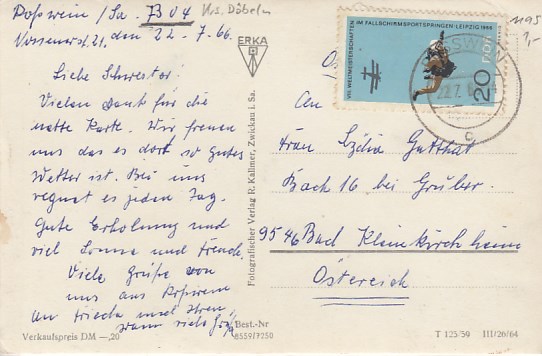 Roßwein / Sa. B 04 Krs. Döbeln
Vossenerst. 21. den 22 - 7. 66.
Liebe Schwester.
Vielen dank für die
nette Karte. Wir freuen
uns das es dort so gutes
Wetter ist. Bei uns
regnet es jeden Tag.
Gute Erholung und
viel Sonne und Freude.
Viele Grüße von
uns aus Roßwein
an Frieda und Ihren
Mann viele Grüße
Verkaufspreis DM —,20
Best.-Nr
8559/7250
ERKA
Fotografischer Verlag R. Kallmer, Zwickau i. Sa.
VIII. WELTMEISTERSCHAFTEN IM FALLSCHIRMSPORTSPRINGEN · LEIPZIG 1966
20
DDR
1195
An
Frau Lydia Gutthat
Bach 16 bei Gruber.
9546 Bad Kleinkirchheim
Östereich
T 125/59 III/26/64